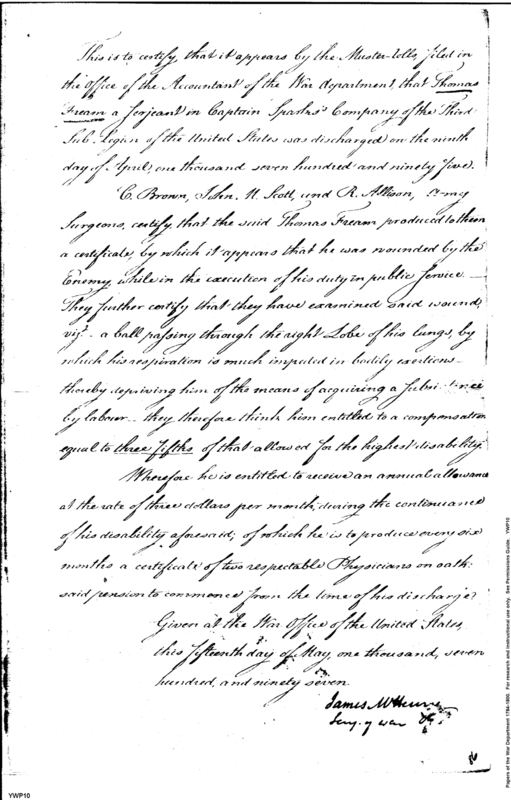 This is to certify, that it appears by the Muster-rolls, filed in
the Office of the Accountant of the War department, that Thomas
Fream a Serjeant in Captain Sparks' Company of the Third
Sub-Legion of the United States was discharged on the ninth
day of April, one thousand seven hundred and ninety five.
C. Brown, John. H. Scott, and R. Allison, Army
Surgeons, certify, that the said Thomas Fream produced to them
a certificate, by which it appears that he was wounded by the
Enemy, while in the execution of his duty in public Service —
They further certify that they have examined said wound,
vizt. — a ball passing through the right Lobe of his lungs, by
which his respiration is much impeded in bodily exertions —
thereby depriving him of the means of acquiring a
by labour — they therefore think him entitled to a compensation
equal to three fifths of that allowed for the highest disability.
Wherefore he is entitled to receive an annual allowance
at the rate of three dollars per month, during the continuance
of his disability aforesaid; of which he is to produce every six
months a certificate of two respectable Physicians on oath:
said pension to commence from the time of his discharge.
Given at the War Office of the United States,
this fifteenth day of May, one thousand, seven
hundred, and ninety seven.
James McHenry
Secy. of war
YWP10
Papers of the War Department 1784-1800. For research and instructional use only. See Permissions Guide. YWP10